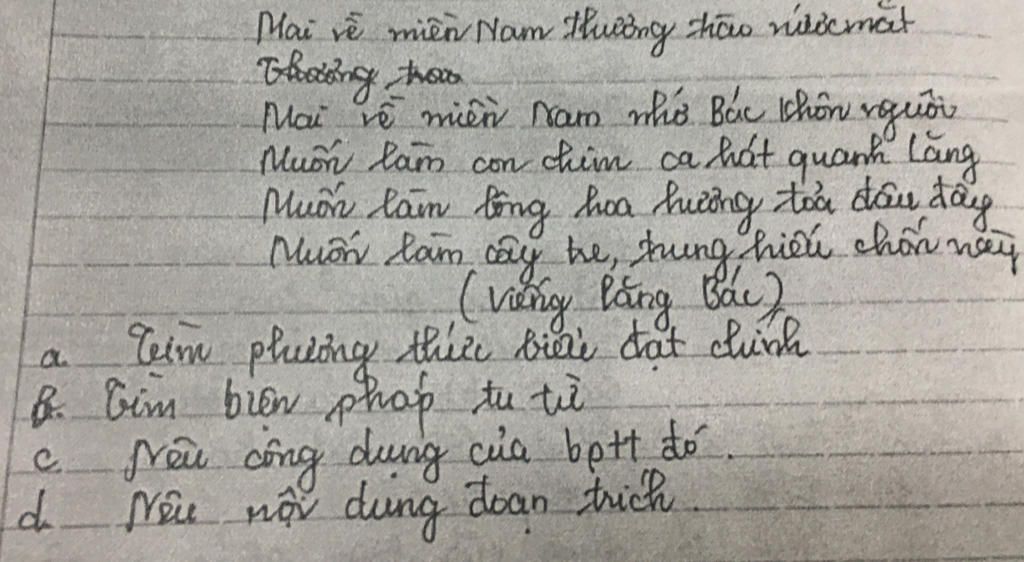 Mai về miền Nam thương trào nước mắt
Mai về miền Nam nhớ Bác khôn nguôi
Muốn làm con chim ca hát quanh lăng
Muốn làm bông hoa hương toả đâu đây
Muốn làm cây tre, trung hiếu chốn này
(Viếng lăng Bác)
a. Tìm phương thức biểu đạt chính
b. Tìm biện pháp tu từ
c. Nêu công dụng của bptt đó.
d. Nêu nội dung đoạn trích.